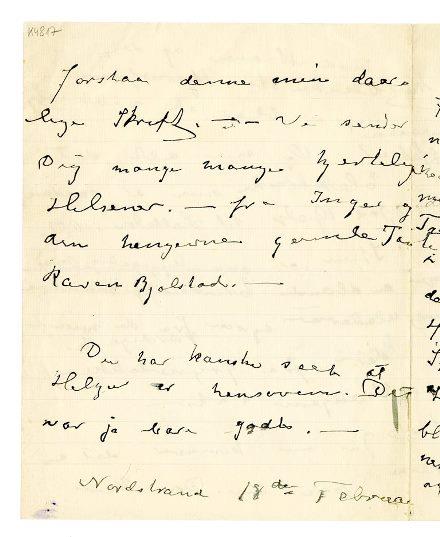 K4817
Forstaa denne min daar-
lige Skrift. — Vi sender
Dig mange mange hjertelige
Helsener. — fra Inger og
din hengivne gamle Tante
Karen Bjølstad. —
Du har kanske seet at
Helga er hensoven. Det
var jo bare godt. —
Nordstrand 18de Februar